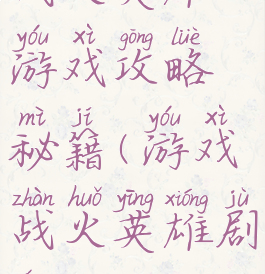 yóu xì gōng lüè
游戏攻略
mì jí yóu xì
秘籍(游戏
zhàn huǒ yīng xióng jù
战火英雄剧